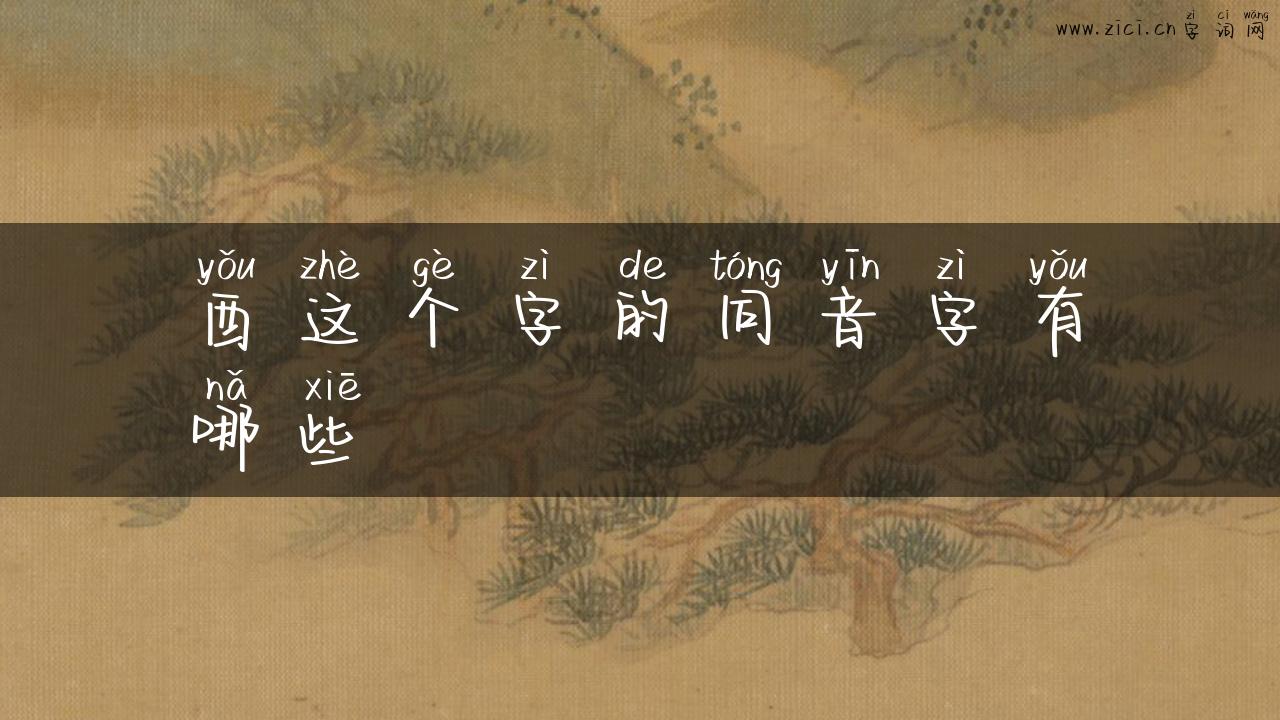 zì cí wǎng
www.zici.cn 字词网
yǒu zhè gè zì de tóng yīn zì yǒu
酉这个字的同音字有
nǎ xiē
哪些